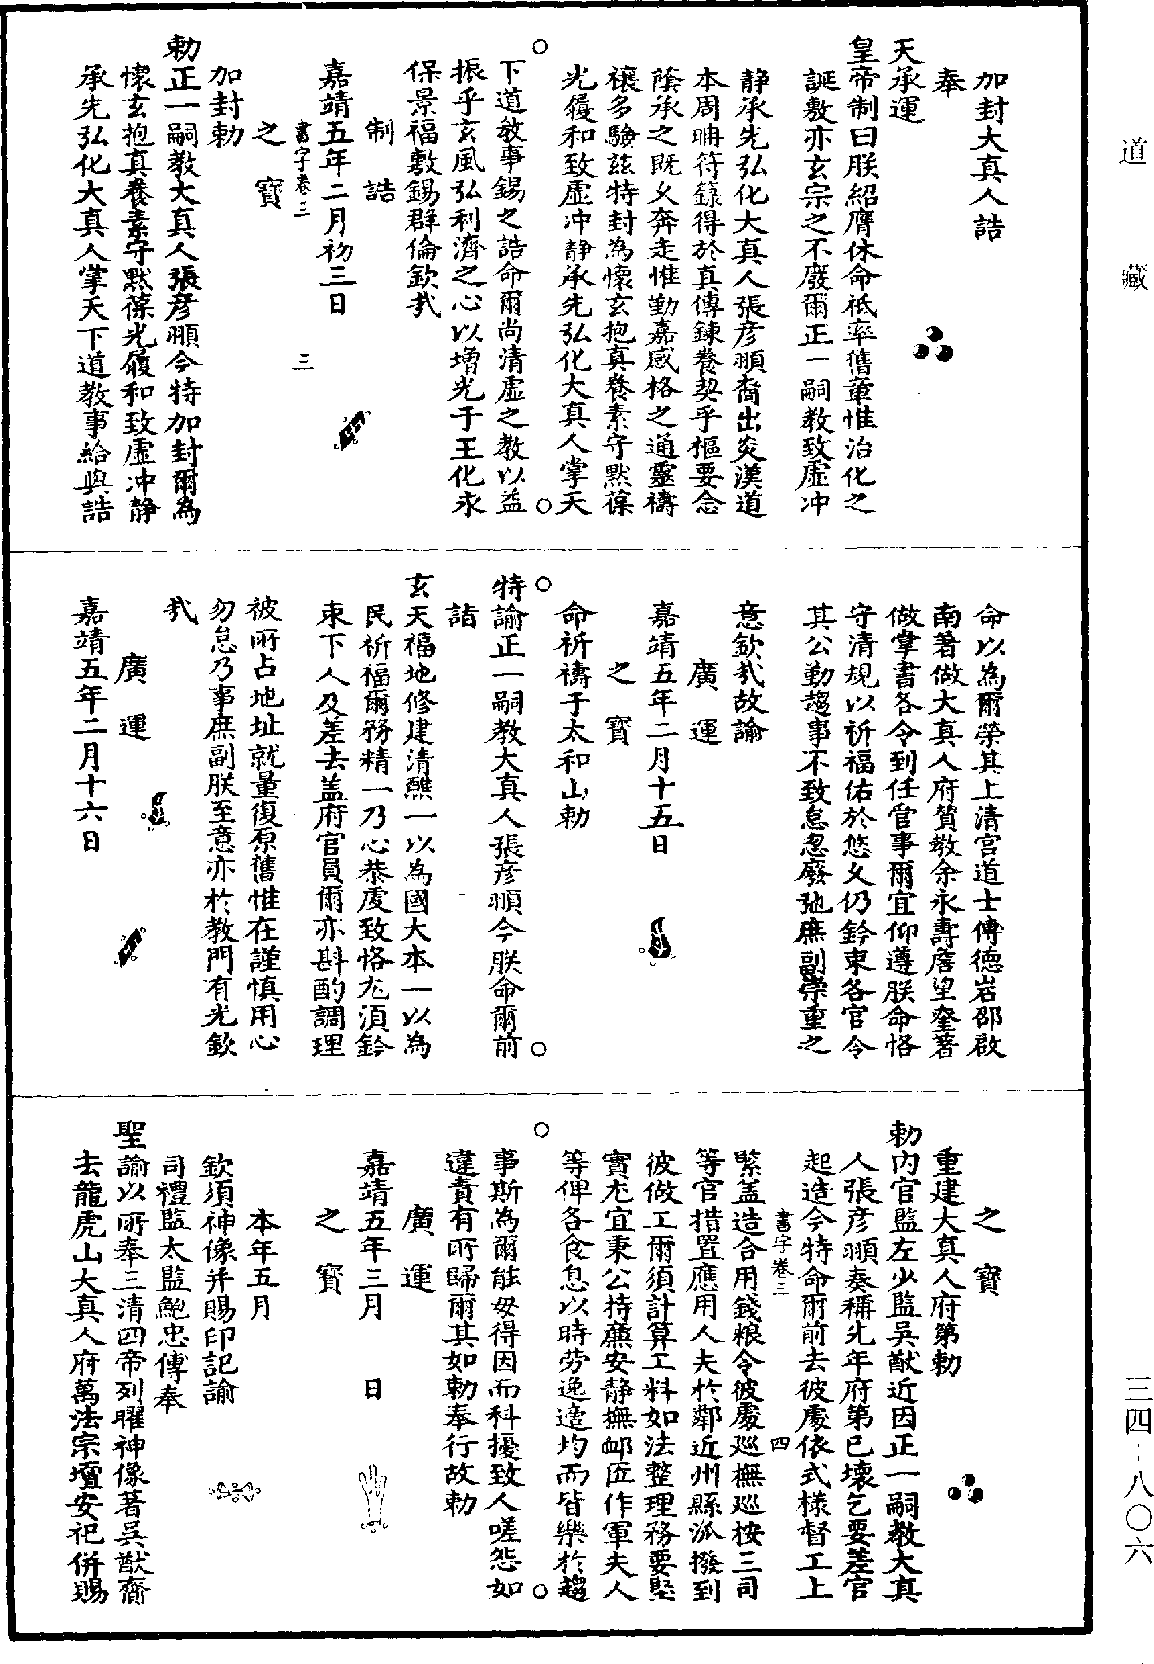 道藏
加封大真人誥
奉
天承運
皇帝制曰朕紹膺休命祗率舊章惟治化之
誕敷亦玄宗之不廢爾正一嗣教致虛冲
靜承先弘化大真人張彥頨裔出炎漢道
本周聃符籙得於真傳鍊養契乎樞要念
蔭承之既久奔走惟勤嘉感格之通靈禱
禳多驗茲特封為懷玄抱真養素守默葆
光履和致虛冲靜承先弘化大真人掌天
下道教事錫之誥命爾尚清虛之教以益
振乎玄風弘利濟之心以增光于王化永
保景福敷錫群倫欽哉
制誥
嘉靖五年二月初三日
書字卷三 三
之寶
加封勅
勅正一嗣教大真人張彥頨今特加封爾為
懷玄抱真養素守默葆光履和致虛冲靜
承先弘化大真人掌天下道教事給與誥
命以為爾榮其上清宮道士傅德岩邵啟
南著做大真人府贊教余永壽詹望奎著
做掌書各令到任管事爾宜仰遵朕命恪
守清規以祈福佑於悠久仍鈐束各官令
其公勤趨事不致怠忽廢弛庶副崇重之
意欽哉故諭
廣運
嘉靖五年二月十五日
之寶
命祈禱于太和山勅
特諭正一嗣教大真人張彥頨今朕命爾前
詣
玄天福地修建清醮一以為國大本一以為
民祈福爾務精一乃心恭虔致恪尤須鈐
束下人及差去盖府官員爾亦斟酌調理
被所占地址就量復原舊惟在謹慎用心
勿怠乃事庶副朕至意亦於教門有光欽
哉
廣運
嘉靖五年二月十六日
之寶
重建大真人府第勅
勅內官監左少監吳猷近因正一嗣教大真
人張彥頨奏稱先年府第已壞乞要差官
起造今特命爾前去彼處依式樣督工上
書字卷三 四
緊盖造合用錢粮令彼處巡撫巡按三司
等官措置應用人夫於鄰近州縣派撥到
彼做工爾須計算工料如法整理務要堅
實尤宜秉公持廉安靜撫卹匠作軍夫人
等俾各食息以時勞逸適均而皆樂於趨
事斯為爾能毋得因而科擾致人嗟怨如
違責有所歸爾其如勅奉行故勅
廣運
嘉靖五年三月 日
之寶
本年五月
欽須神像并賜印記諭
司禮監太監鮑忠傳奉
聖諭以所奉三清四帝列曜神像著吳猷齎
去龍虎山大真人府萬法宗壇安祀併賜
三四-八〇六